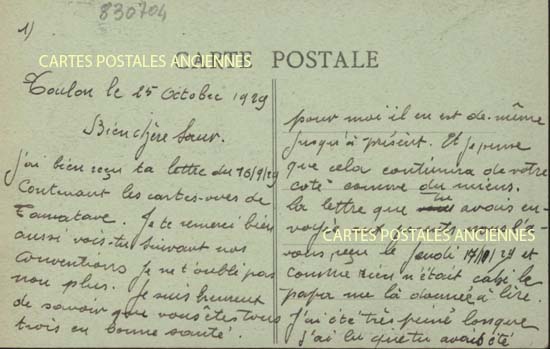 830704
1)
CARTES POSTALES ANCIENNES
CARTE POSTALE
Toulon le 25 Octobre 1929
Bien chère Sœur.
j'ai bien reçu ta lettre du 16/9/29
Contenant les cartes-vues de
Tamatave. Je te remerci bien
aussi vois-tu suivant nos
Conventions je ne t'oubli pas
non plus. Je suis heureux
de savoir que vous êtes tous
trois en bonne santé.
pour moi il en est de même
jusqu'à présent. Et je pense
que cela continuera de votre
côté comme du miens.
la lettre que tu avais en-
voyé
CARTES POSTALES ANCIENNES
vous, reçu le Jeudi et
comme rien n'était le
papa me là donnée à lire.
j'ai été très peiné lorsque
j'ai lu que tu avais été